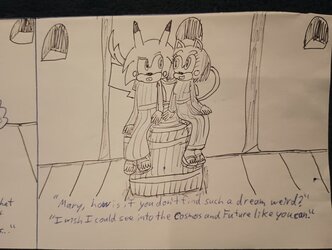 hat
s.."
"Mary, how is it you don't find such a dream weird?"
"I wish I could see into the Cosmos and Future like you can."